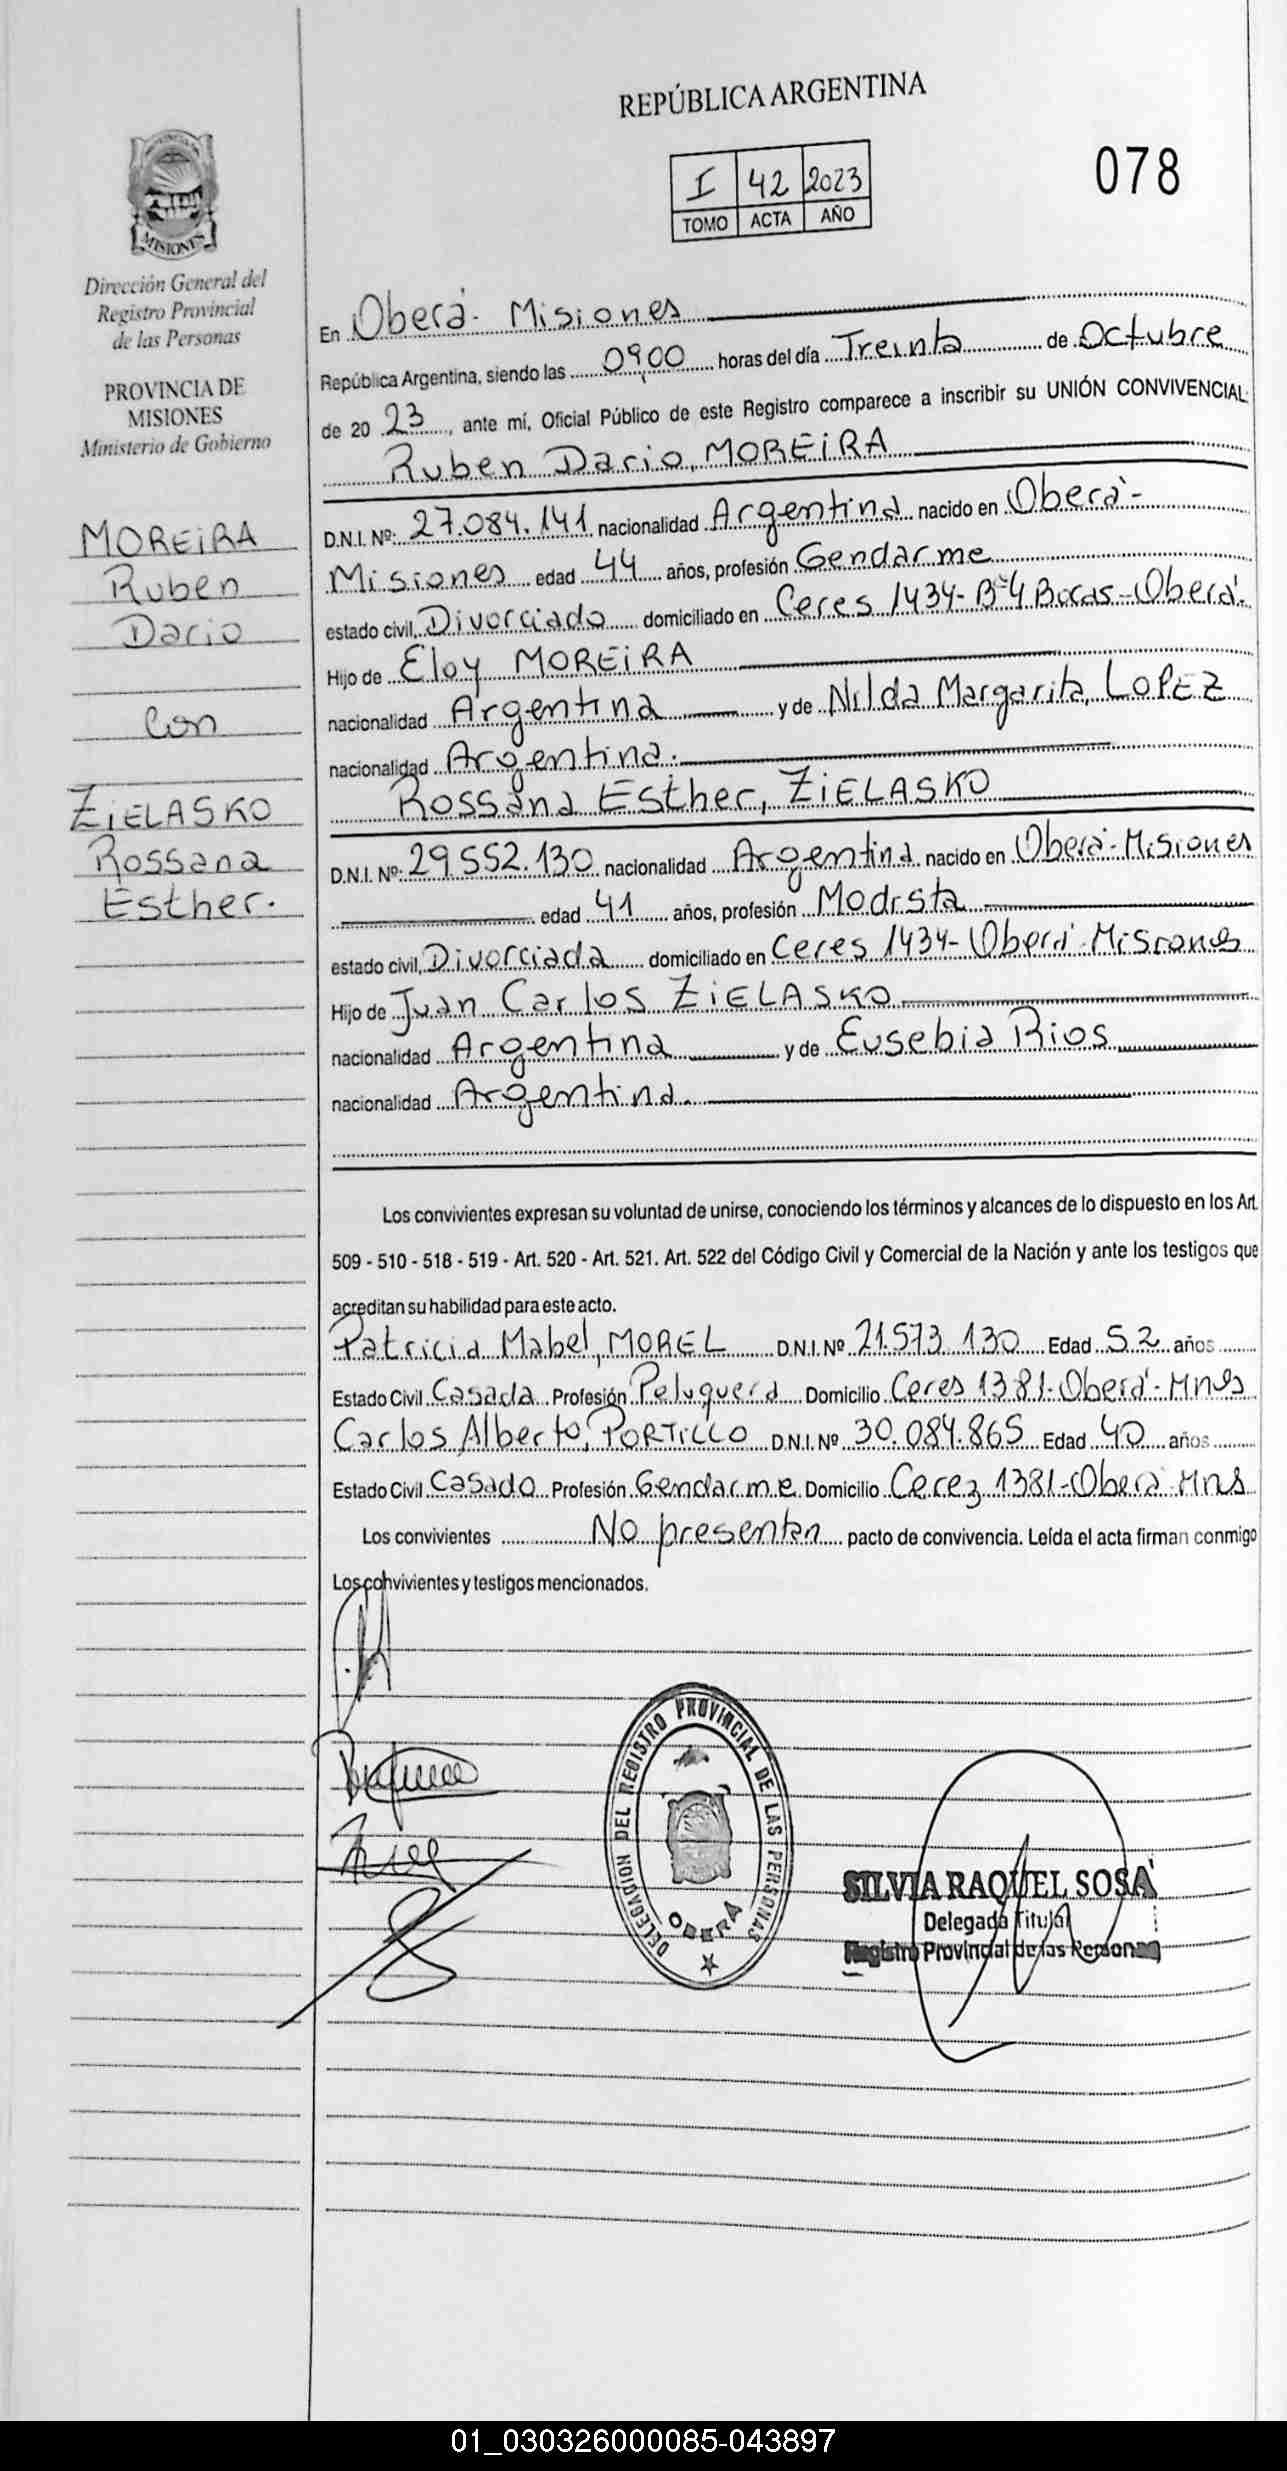 REPÚBLICA ARGENTINA
I 42 2023
TOMO ACTA AÑO
078
MISIONES
Dirección General del
Registro Provincial
de las Personas
PROVINCIA DE
MISIONES
Ministerio de Gobierno
MOREIRA
Ruben
Dario
Con
ZIELASKO
Rossana
Esther.
En Oberá - Misiones
República Argentina, siendo las 09,00 horas del día Treinta de Octubre
de 20 23, ante mí, Oficial Público de este Registro comparece a inscribir su UNIÓN CONVIVENCIAL:
Ruben Dario, MOREIRA
D.N.I. Nº: 27.084.141 nacionalidad Argentina nacido en Oberá -
Misiones edad 44 años, profesión Gendarme
estado civil, Divorciado domiciliado en Ceres 1434 - Bº 4 Bocas - Oberá.
Hijo de Eloy MOREIRA
nacionalidad Argentina y de Nilda Margarita, LOPEZ
nacionalidad Argentina.
Rossana Esther, ZIELASKO
D.N.I. Nº: 29.552.130 nacionalidad Argentina nacido en Oberá - Misiones
edad 41 años, profesión Modista
estado civil, Divorciada domiciliado en Ceres 1434 - Oberá - Misiones
Hijo de Juan Carlos ZIELASKO
nacionalidad Argentina y de Eusebia Rios
nacionalidad Argentina.
Los convivientes expresan su voluntad de unirse, conociendo los términos y alcances de lo dispuesto en los Art.
509 - 510 - 518 - 519 - Art. 520 - Art. 521. Art. 522 del Código Civil y Comercial de la Nación y ante los testigos que
acreditan su habilidad para este acto.
Patricia Mabel, MOREL D.N.I. Nº 21.573.130 Edad 52 años
Estado Civil Casada Profesión Peluquera Domicilio Ceres 1381 - Oberá - Mnes
Carlos Alberto, PORTILLO D.N.I. Nº 30.084.865 Edad 40 años
Estado Civil Casado Profesión Gendarme Domicilio Cerez 1381 - Oberá - Mns
Los convivientes No presentan pacto de convivencia. Leída el acta firman conmigo
Los convivientes y testigos mencionados.
DELEGACION DEL REGISTRO PROVINCIAL DE LAS PERSONAS
OBERÁ
SILVIA RAQUEL SOSA
Delegada Titular
Registro Provincial de las Personas
01_030326000085-043897